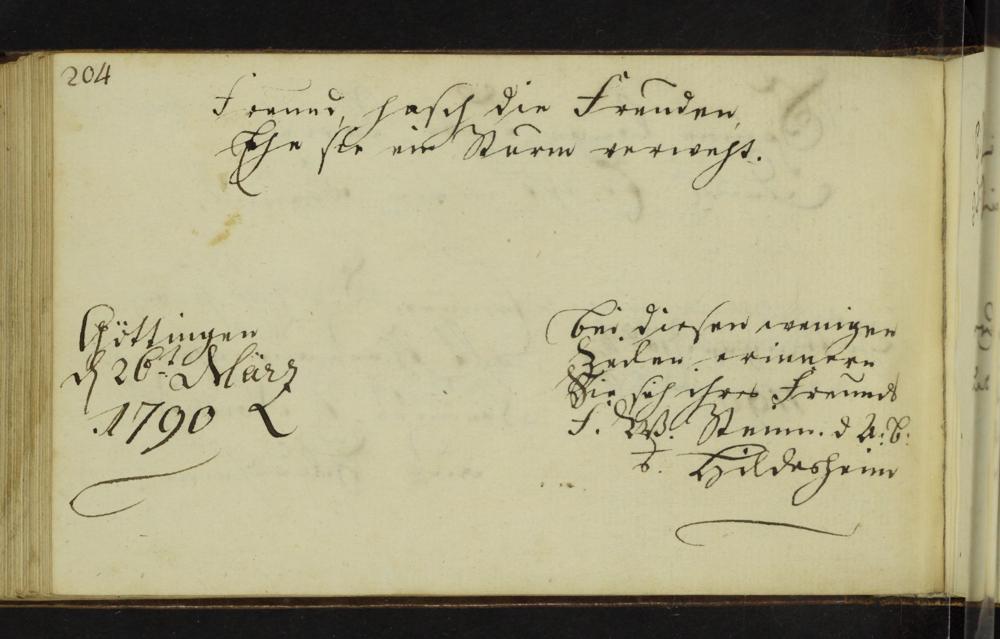 204
Freund, hasch die Freuden,
Ehe sie ein Sturm verweht.
Göttingen
d 26t März
1790
Bei diesen wenigen
Zeilen erinnern
Sie sich ihres Freunds
F. W. Stemm. d. A: B:
Hildesheim